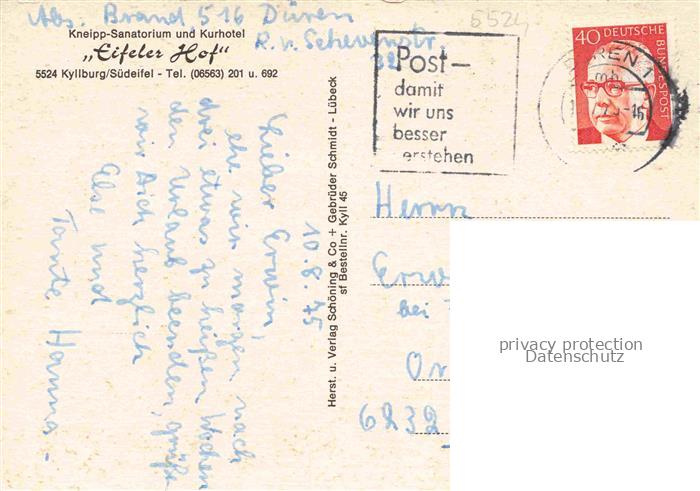 Abs. Brand, 516 Düren
R. v. Schevenstr.
32
Kneipp-Sanatorium und Kurhotel
„Eifeler Hof“
5524 Kyllburg/Südeifel - Tel. (06563) 201 u. 692
5524
Post-
damit
wir uns
besser
erstehen
40 DEUTSCHE
BUNDESPOST
10.8.75
Lieber Erwin,
ehe wir morgen nach
drei etwas zu heißen Wochen
den Urlaub beenden, grüßt
wir Dich herzlich
Else und
Tante Hanna -
Herst. u. Verlag Schöning & Co + Gebrüder Schmidt - Lübeck
sf Bestellnr. Kyll 45
Herrn
Erw
bei
Or
6232
privacy protection
Datenschutz